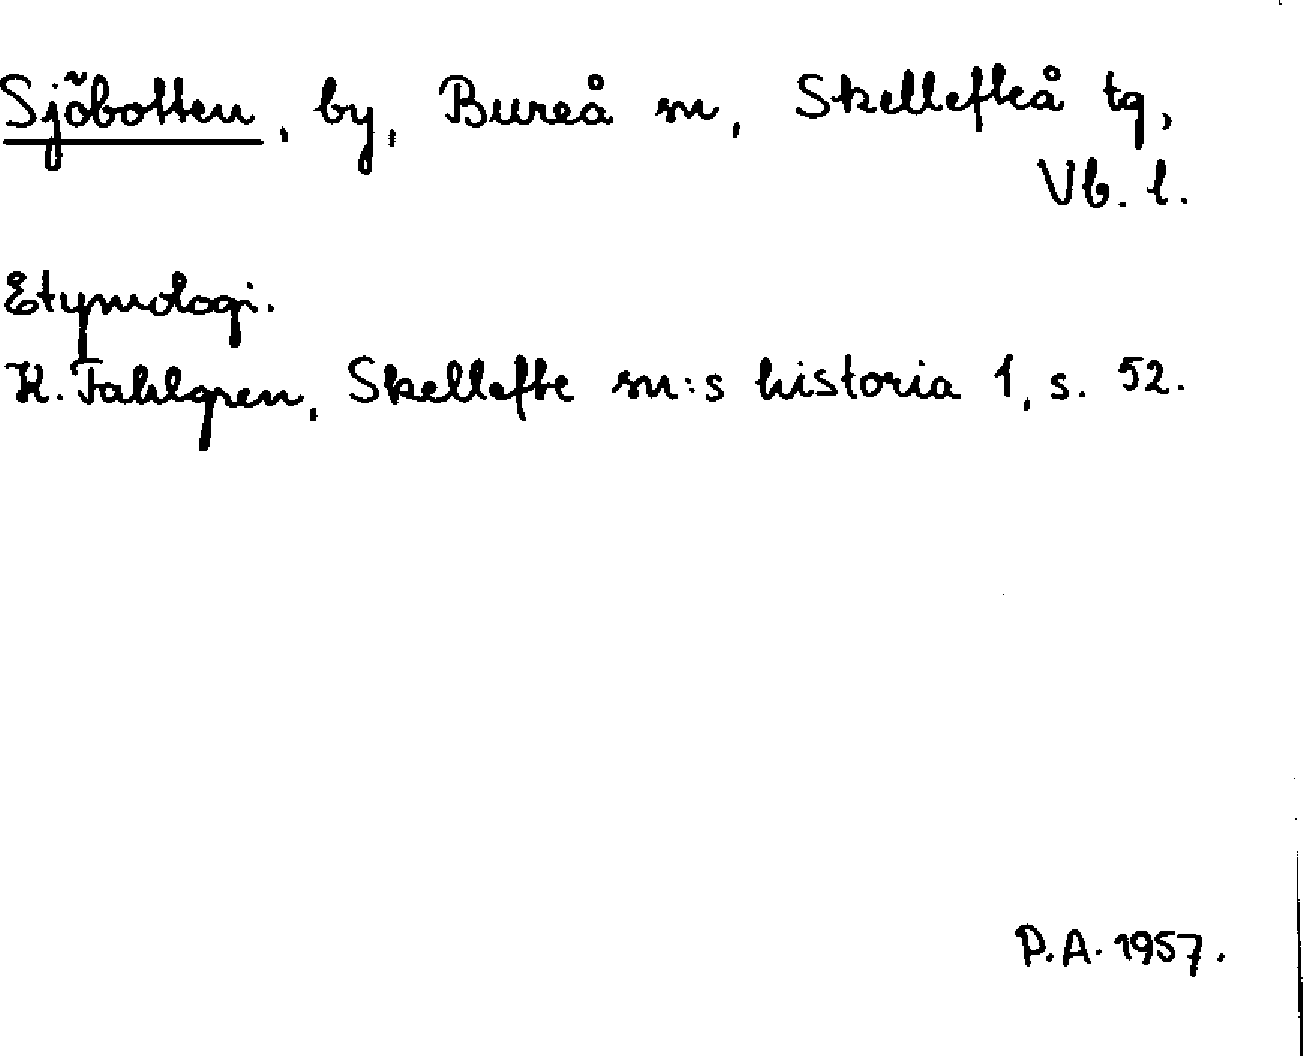 Sjöbotten, by, Bureå sn, Skellefteå tg,
Vb. l.
Etymologi.
K. Fahlgren, Skellefte sn:s historia 1, s. 52.
P.A. 1957.